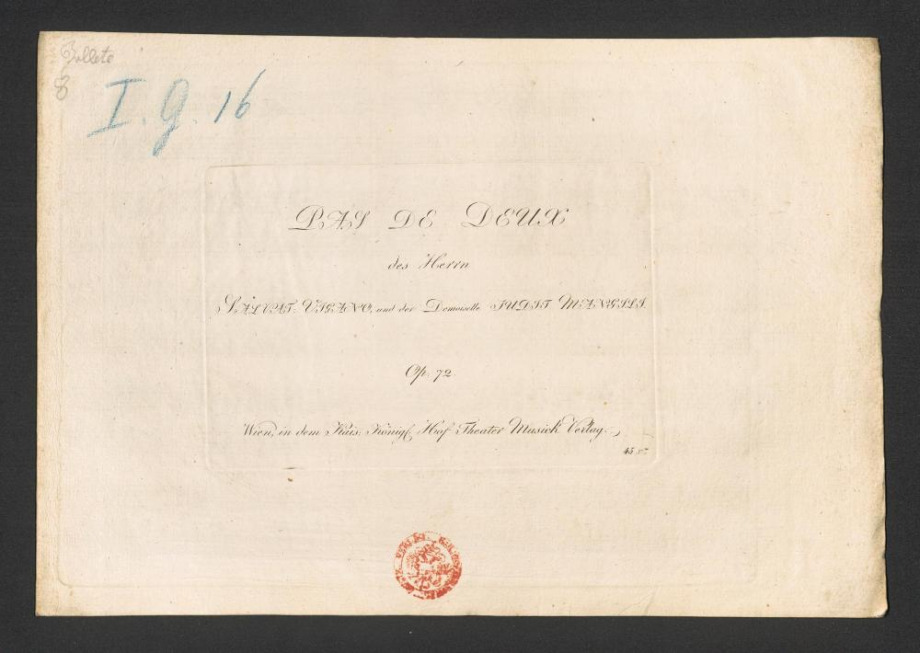 Ballete
8
I. g. 16
PAS DE DEUX
des Herrn
SALVAT. VIGANO, und der Demoiselle IUDIT. MANGILI.
Op. 72.
Wien, in dem Kais. Königl. Hof Theater Musick Verlag
45 xr